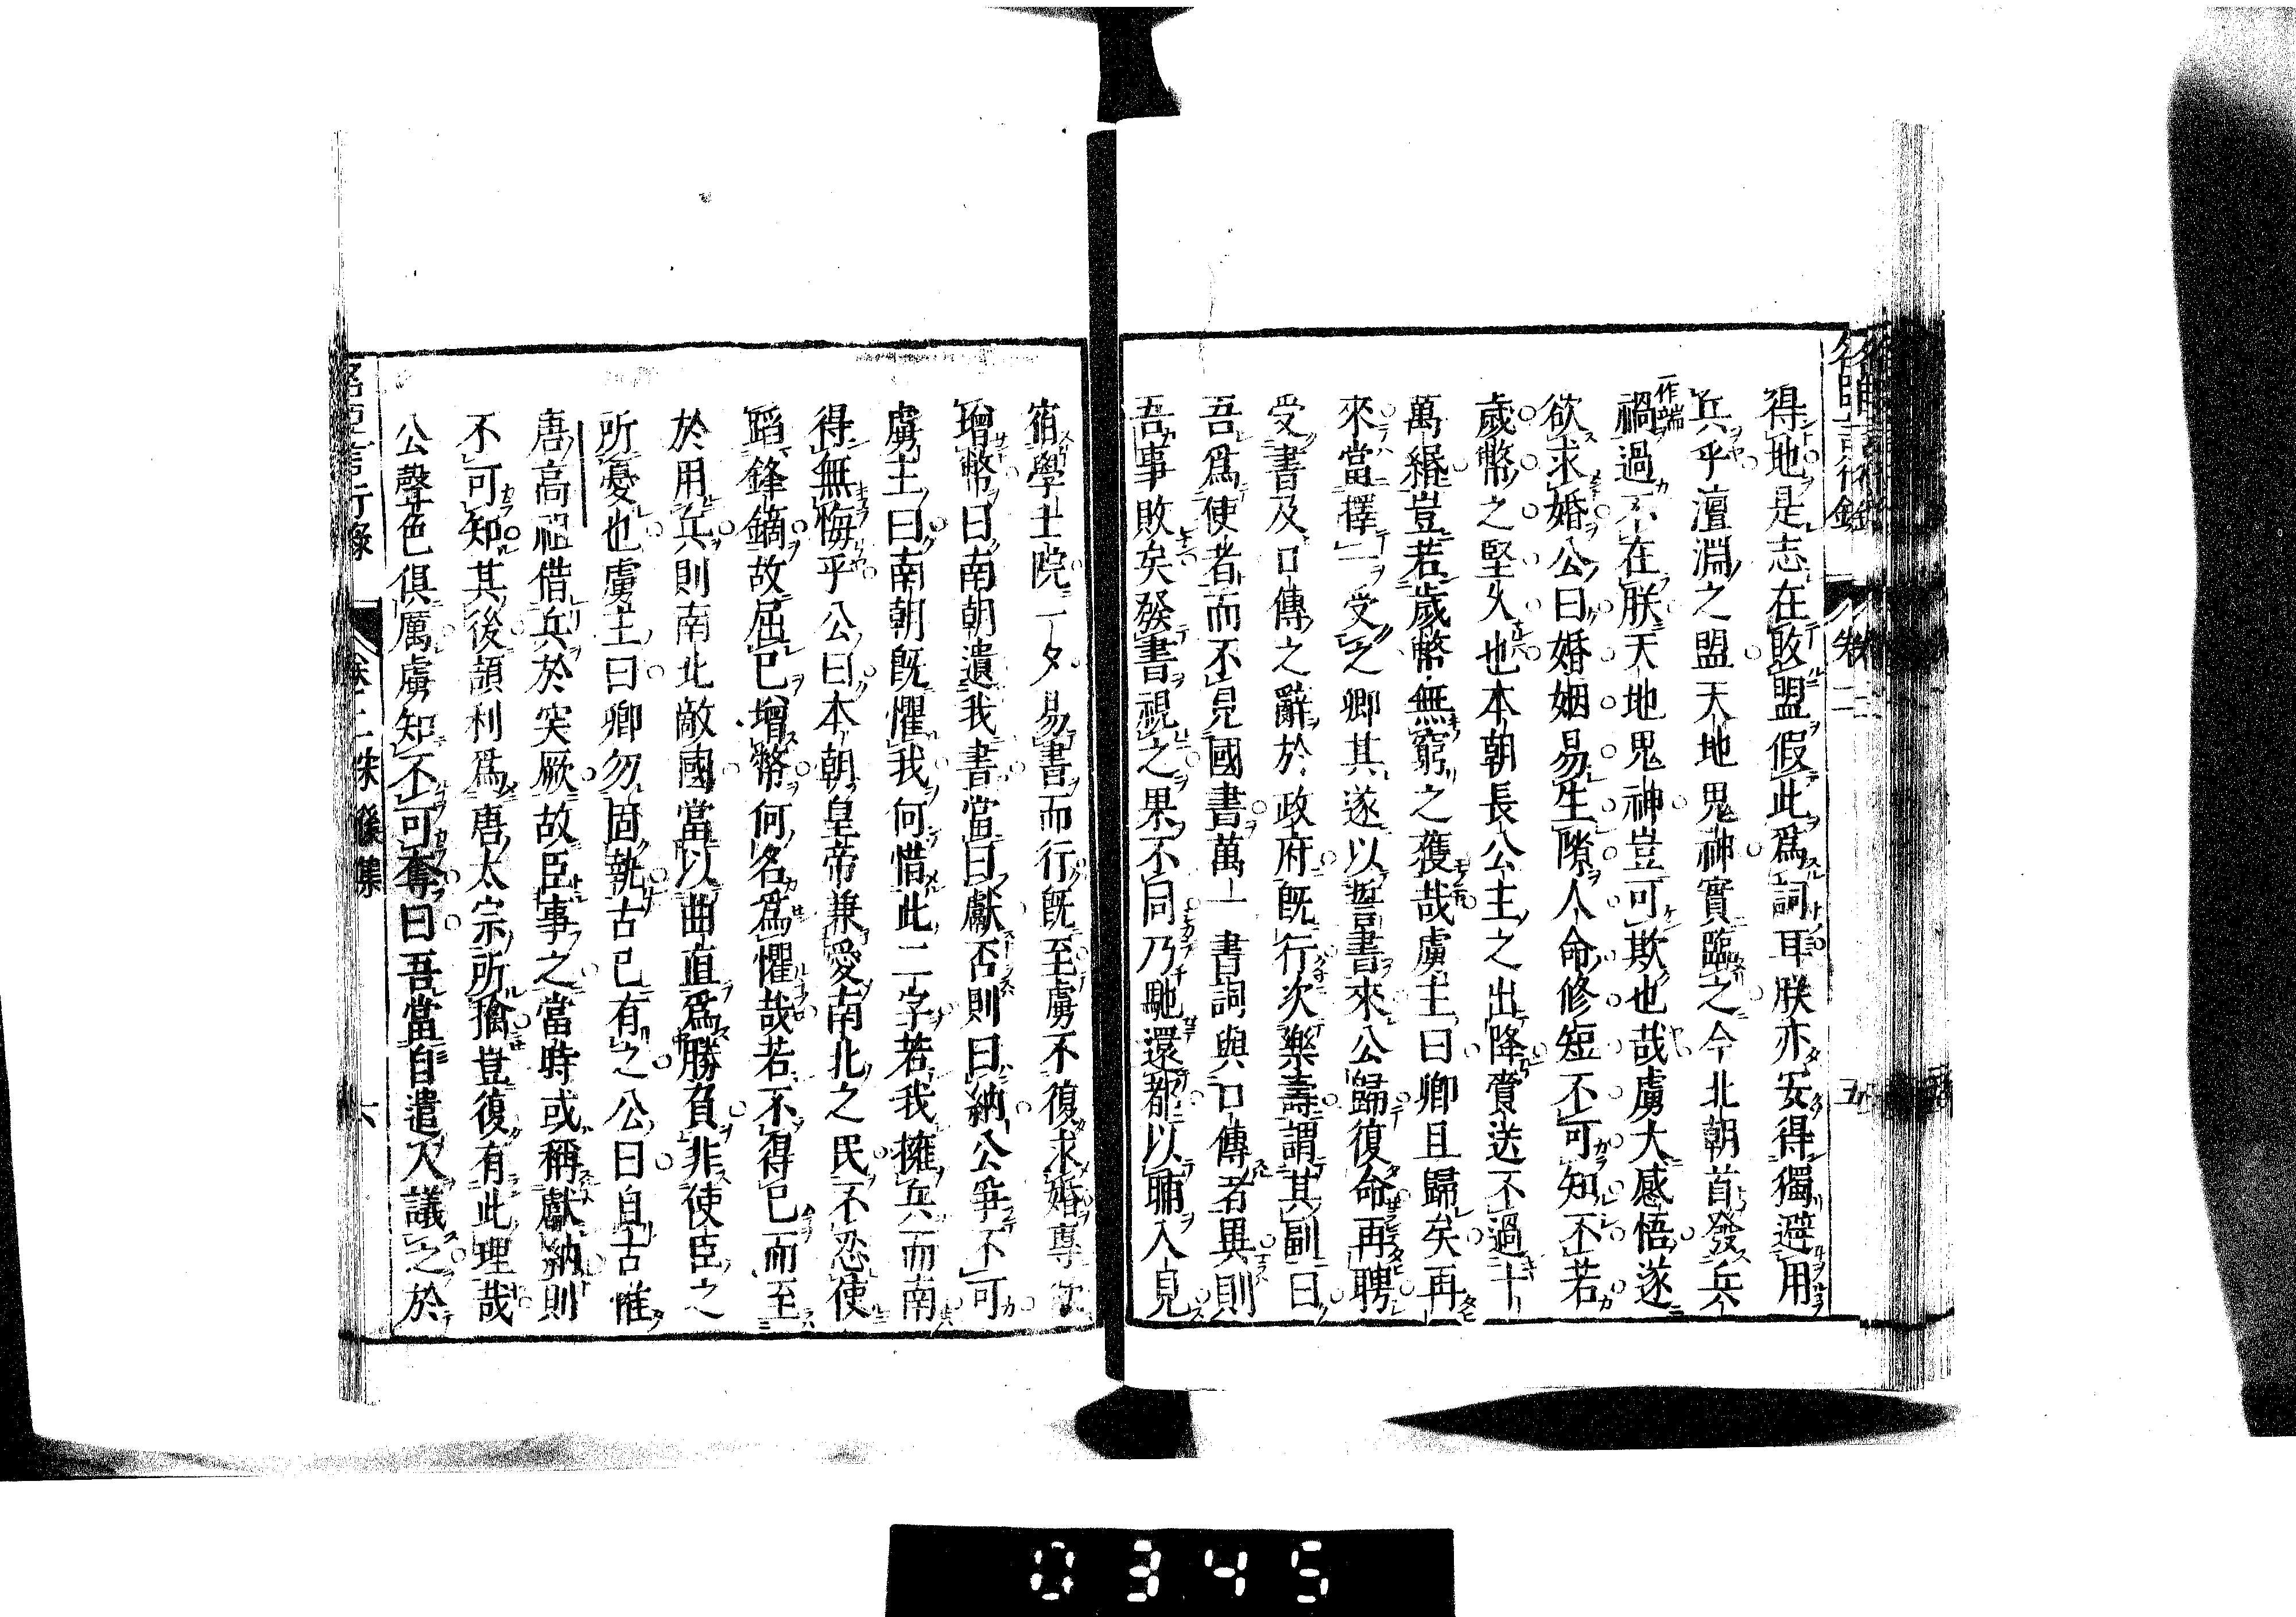 得地是志在敗盟假此爲詞耳朕亦安得獨避用
兵乎澶淵之盟天地鬼神實臨之今北朝首發兵
一作端
禍過不在朕天地鬼神豈可欺也哉虜大感悟遂
欲求婚公曰婚姻易生隙人命修短不可知不若
歲幣之堅久也本朝長公主之出降賫送不過十
萬緡豈若歲幣無窮之獲哉虜主曰卿且歸矣再
來當擇一受之卿其遂以誓書來公歸復命再聘
受書及口傳之辭於政府既行次樂壽謂其副曰
吾爲使者而不見國書萬一書詞與口傳者異則
吾事敗矣發書視之果不同乃馳還都以晡入見
宿學士院一夕易書而行既至虜不復求婚專欲
增幣曰南朝遺我書當曰獻否則曰納公爭不可
虜主曰南朝既懼我何惜此二字若我擁兵而南
得無悔乎公曰本朝皇帝兼愛南北之民不忍使
蹈鋒鏑故屈已增幣何名爲懼哉若不得已而至
於用兵則南北敵國當以曲直爲勝負非使臣之
所憂也虜主曰卿勿固執古已有之公曰自古惟
唐高祖借兵於突厥故臣事之當時或稱獻納則
不可知其後頡利爲唐太宗所擒豈復有此理哉
公聲色俱厲虜知不可奪曰吾當自遣人議之於
名臣言行錄
卷二
朱
後集
六
五
0345